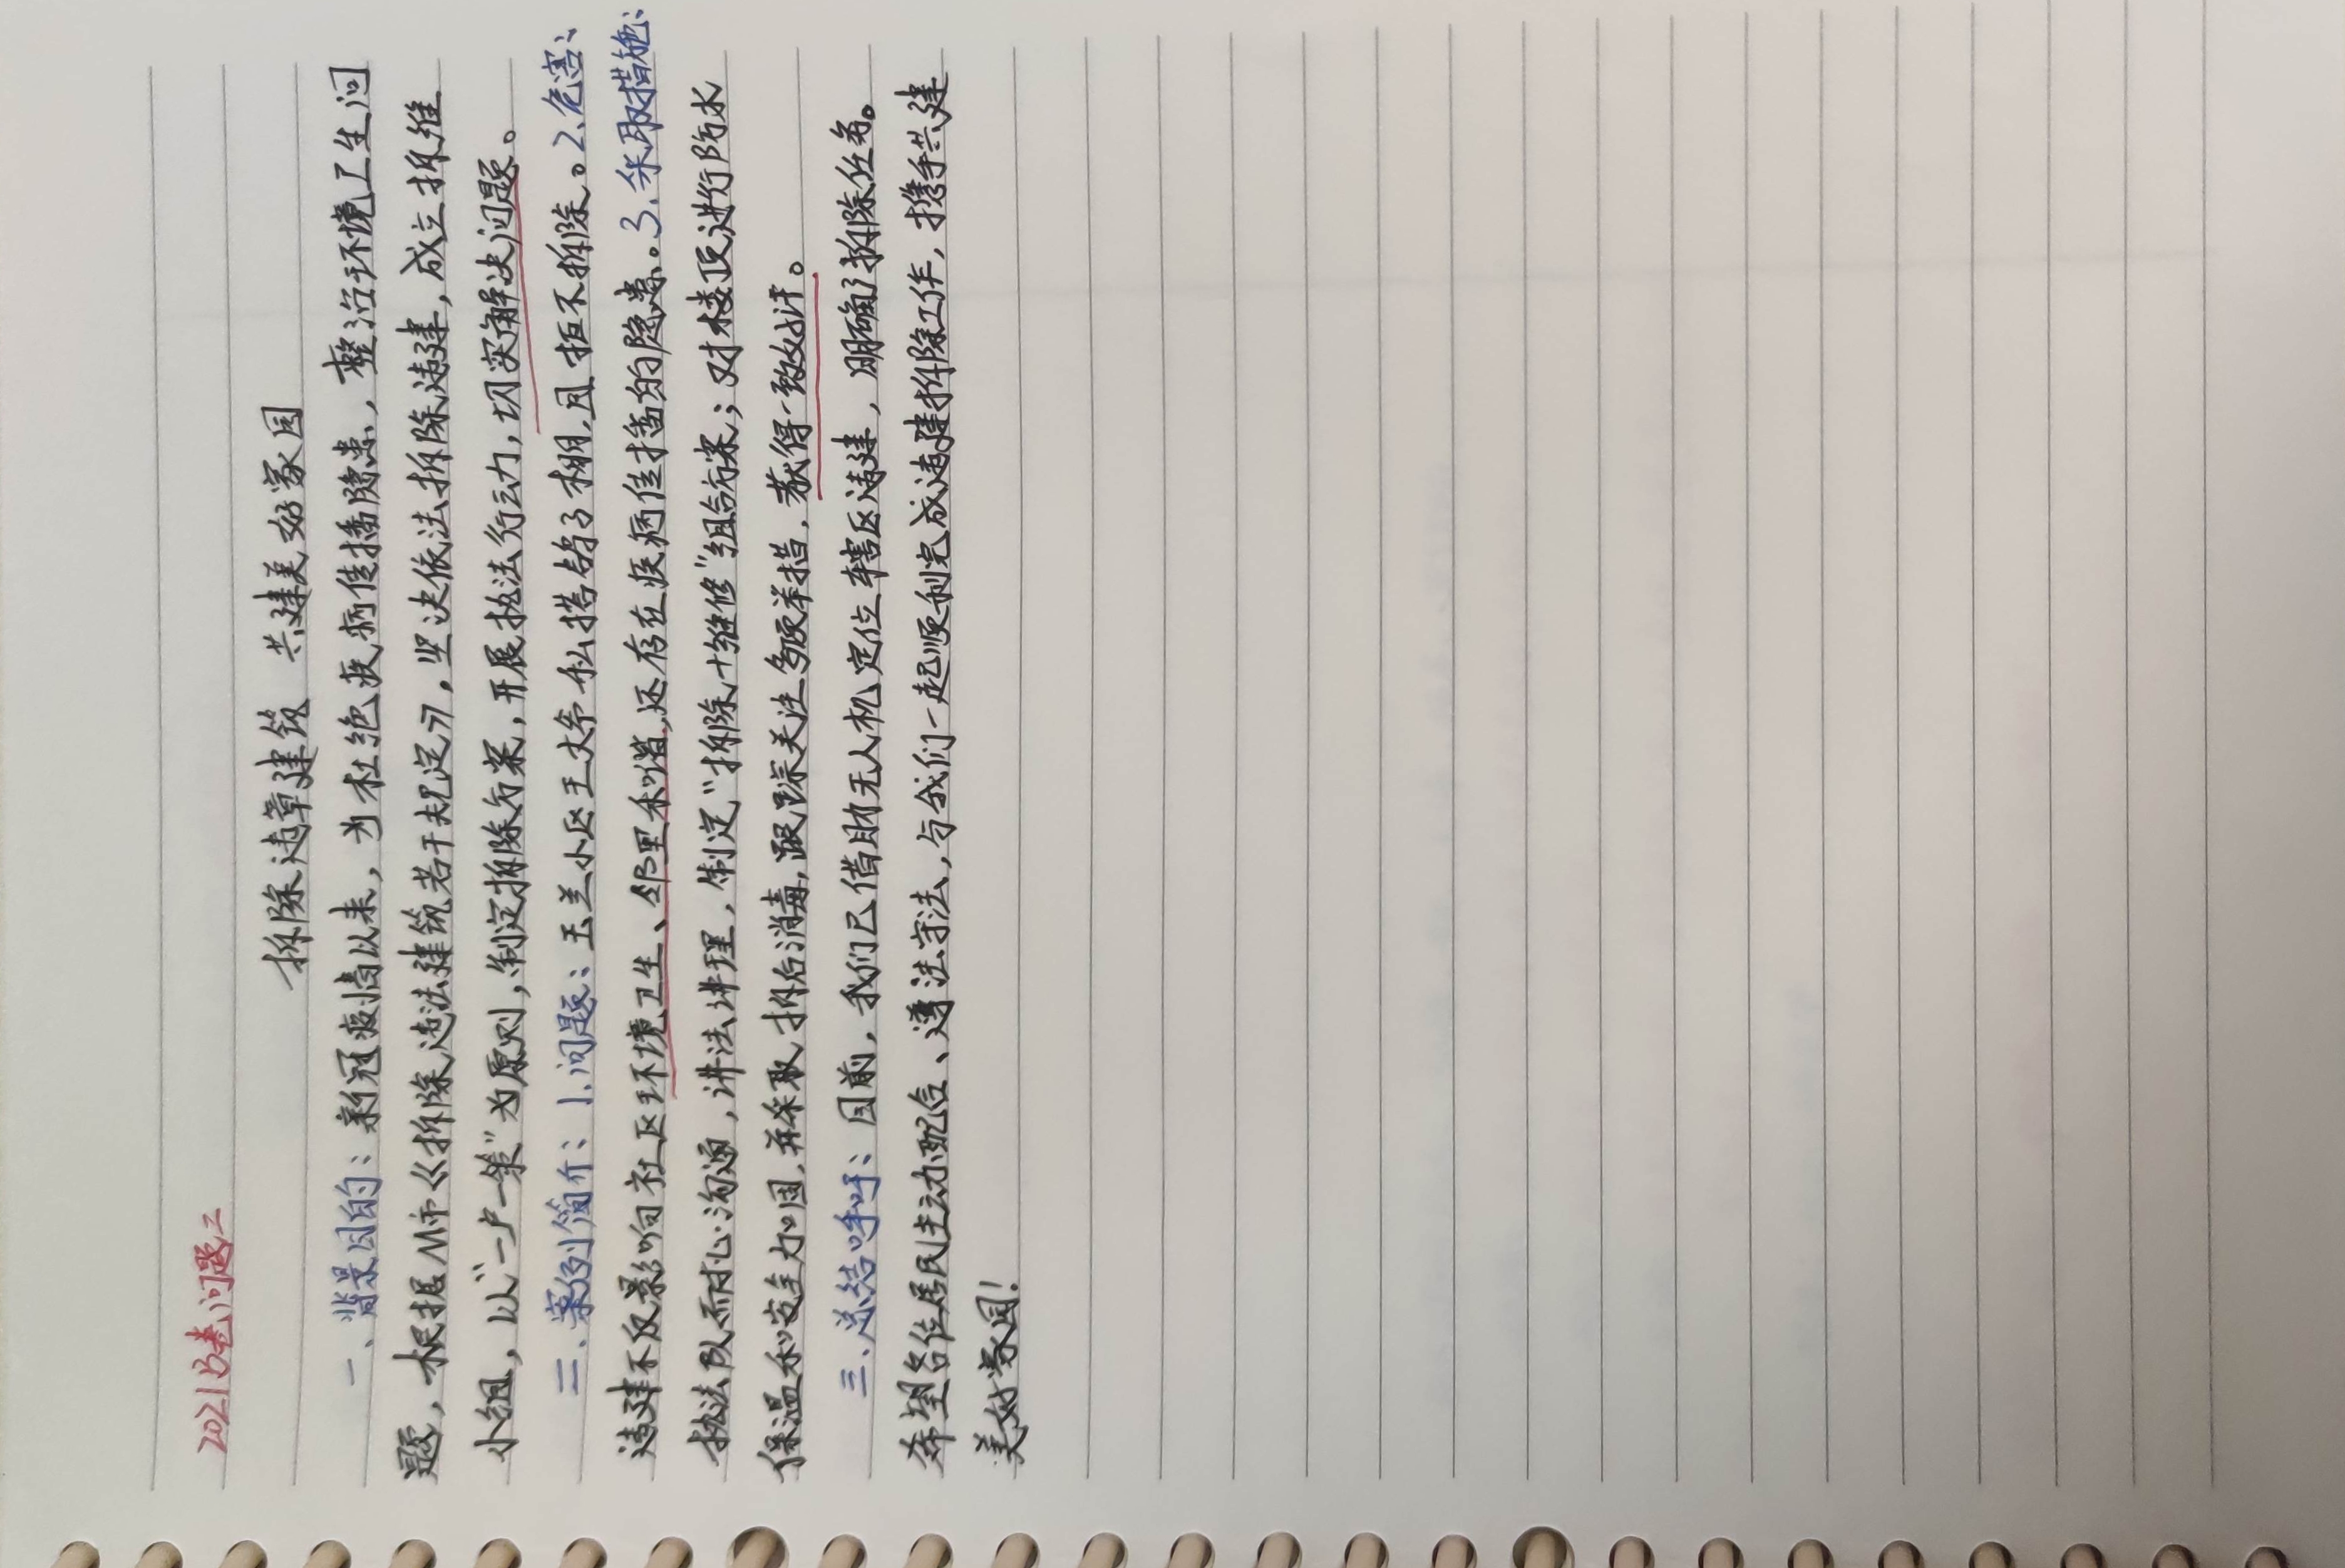 2021B卷问题二
拆除违章建筑 共建美好家园
一、背景目的：新冠疫情以来，为杜绝疾病传播隐患，整治环境卫生问
题，根据M市《拆除违法建筑若干规定》，坚决依法拆除违建，成立拆维
小组，以“一户一策”为原则，制定拆除方案，开展执法行动，切实解决问题。
二、案例简介：1.问题：玉兰小区王大爷私搭鸽子棚，且拒不拆除。2.危害：
违建不仅影响社区环境卫生、邻里和谐，还存在疾病传播的隐患。3.采取措施：
执法队耐心沟通，讲法讲理，制定“拆除+维修”组合方案；对楼顶进行防水
保温和安全加固，并采取拆后消毒，跟踪关注多项举措，获得一致好评。
三、总结呼吁：目前，我们已借助无人机定位辖区违建，明确了拆除任务。
希望各位居民主动配合、遵法守法，与我们一起顺利完成违建拆除工作，携手共建
美好家园！